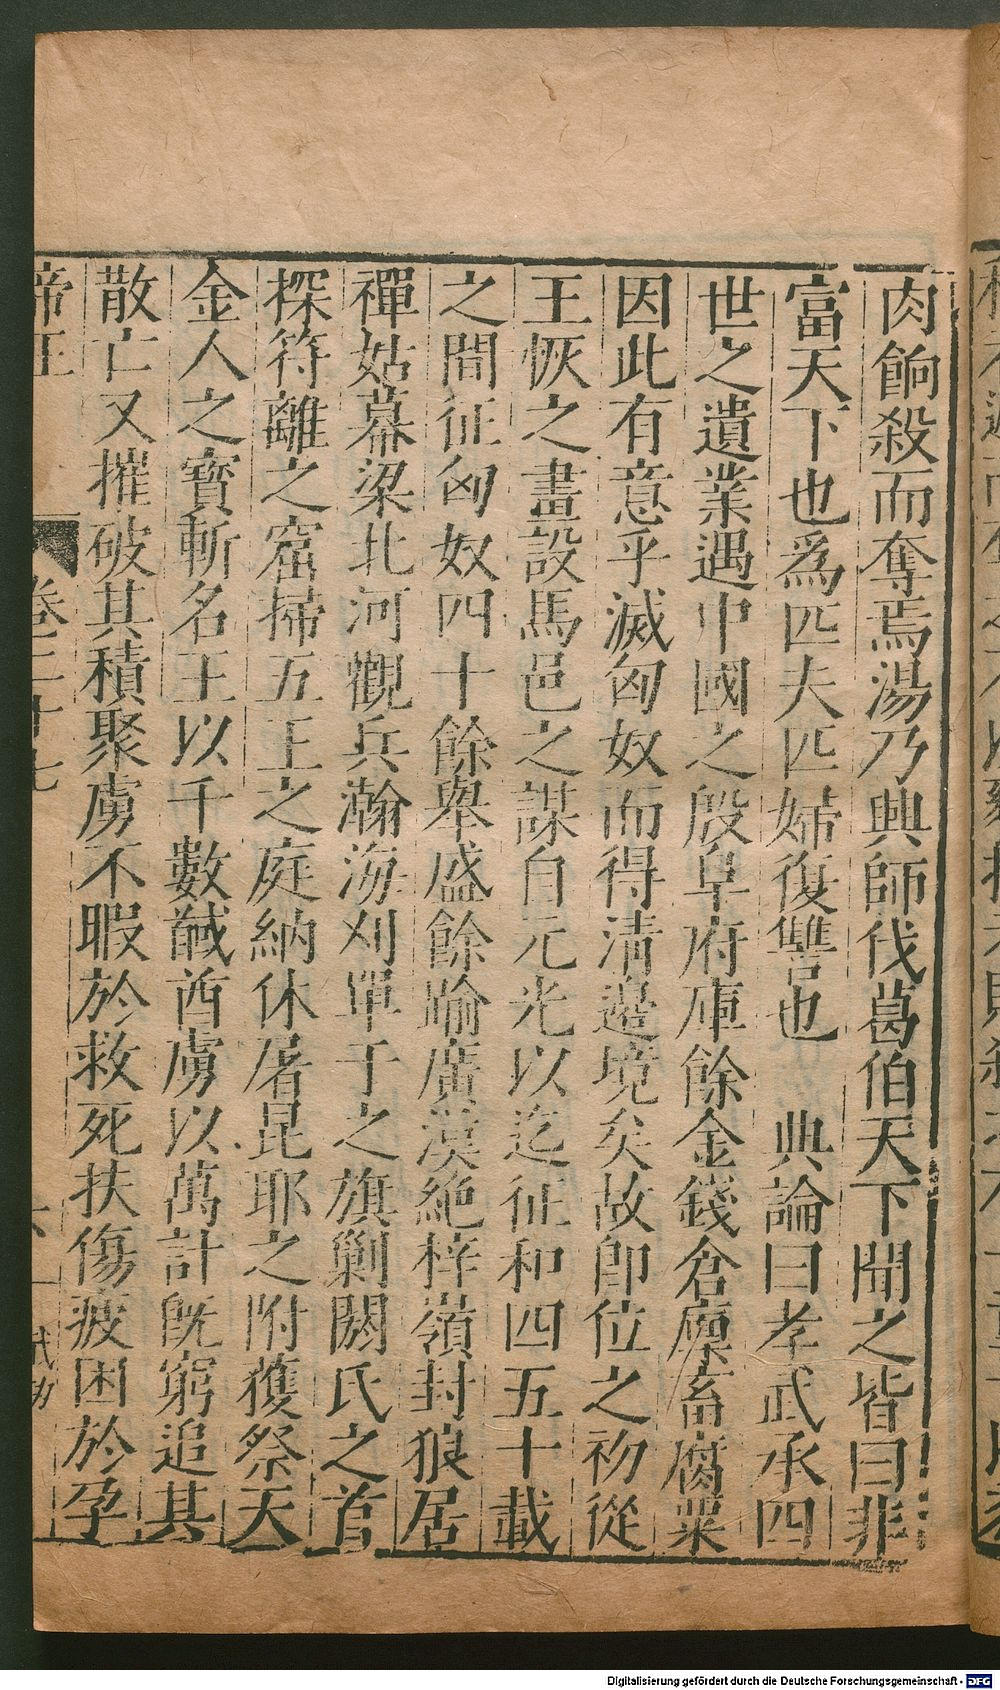 肉餉殺而奪焉湯乃興師伐葛伯天下聞之皆曰非
富天下也爲匹夫匹婦復讐也　典論曰孝武承四
世之遺業遇中國之殷阜府庫餘金錢倉廩畜腐粟
因此有意乎滅匈奴而得清邊境矣故即位之初從
王恢之畫設馬邑之謀自元光以迄征和四五十載
之間征匈奴四十餘舉盛餘踰廣漠絶梓嶺封狼居
禪姑幕梁北河觀兵瀚海刈單于之旗剿閼氏之首
探符離之窟掃五王之庭納休屠昆耶之附獲祭天
金人之寶斬名王以千數馘酋虜以萬計旣窮追其
散亡又摧破其積聚虜不暇於救死扶傷疲困於孕
帝王　卷三十七　六　武功
Digitalisierung gefördert durch die Deutsche Forschungsgemeinschaft - DFG